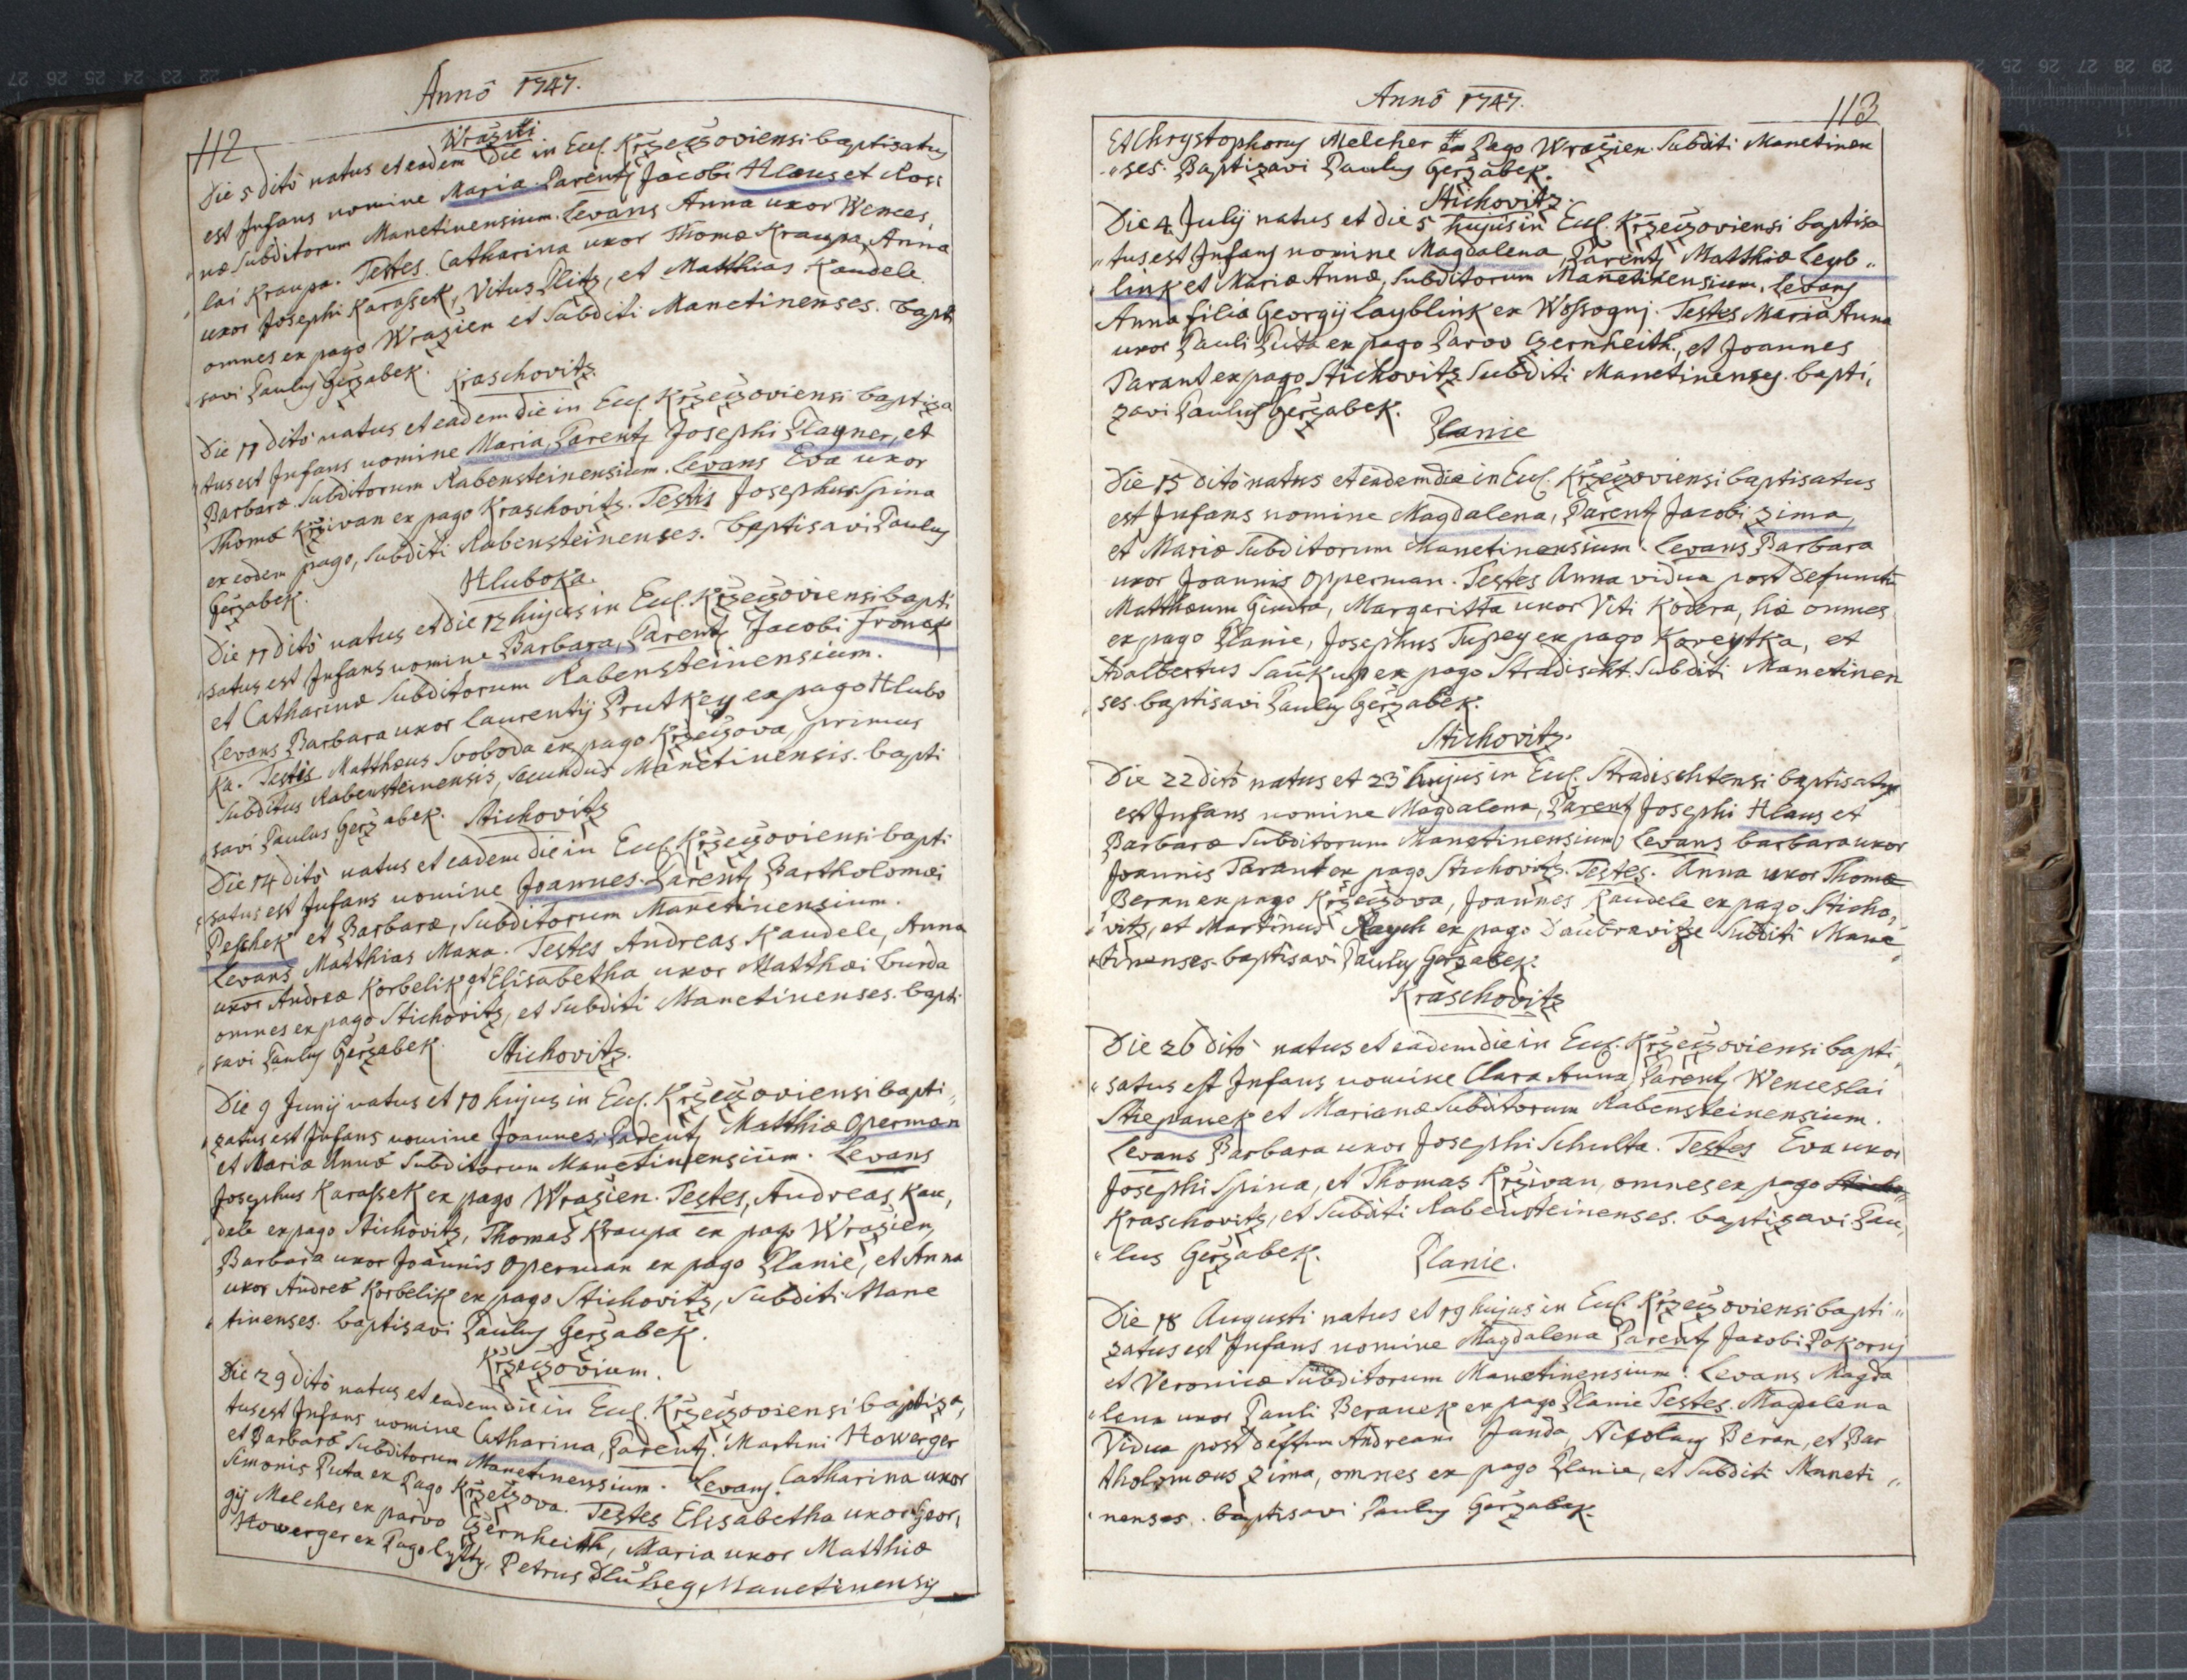 Annō 1747.
112
Wražni.
Die 5 ditō natus et eadem Die in Eccl. Kržečzoviensi baptisatus
est Infans nomine Maria. Parentq Jacobi Klaus et Rosi
næ Subditorum Manetinensium. Levans Anna uxor Wences,
lai Kraupa. Testes. Catharina uxor Thomæ Kraupa, Anna
uxor Josephi Karassek, Vitus Plitz, et Matthias Kaudele
omnes ex pago Wražien et Subditi Manetinenses. bapti
savi Paulus Geržabek.
Kraschovitz.
Die 11 ditō natus et eadem die in Eccl. Kržečzoviensi baptiza
tus est Infans nomine Maria, Parentq Josephi Playner, et
Barbaræ Subditorum Rabensteinensium. Levans Eva uxor
Thomæ Krživan ex pago Kraschovitz. Testis Josephus Spina
ex eodem pago, Subditi Rabensteinenses. baptisavi Paulus
Geržabek.
Hluboka.
Die 11 ditō natus et die 12 hujus in Eccl. Kržečzoviensi bapti
satus est Infans nomine Barbara, Parentq Jacobi Fronek
et Catharinæ Subditorum Rabensteinensium.
Levans Barbara uxor Laurentij Prutkey ex pago Hlubo
ka. Testis Matthæus Svoboda ex pago Kržečzova, primus
Subditus Rabensteinensis, Secundus Manetinensis. bapti
savi Paulus Geržabek.
Stichovitz
Die 14 ditō natus et eadem die in Eccl. Kržečzoviensi bapti
satus est Infans nomine Joannes. Parentq Bartholomæi
Peschek et Barbaræ, Subditorum Manetinensium.
Levans Matthias Maxa. Testes Andreas Kaudele, Anna
uxor Andreæ Korbelik, et Elisabetha uxor Matthæi Burda
omnes ex pago Stichovitz, et Subditi Manetinenses. bapti
savi Paulus Geržabek.
Stichovitz.
Die 9 Junij natus et 10 hujus in Eccl. Kržečzoviensi bapti,,
zatus est Infans nomine Joannes. Parentq Matthiæ Operman
et Mariæ Annæ Subditorum Manetinensium. Levans
Josephus Karassek ex pago Wražien. Testes, Andreas Kau,
dele ex pago Stichovitz, Thomas Kraupa ex pago Wražien,
Barbara uxor Joannis Operman ex pago Planie, et Anna
uxor Andreæ Korbelik ex pago Stichovitz, Subditi Mane
tinenses. baptisavi Paulus Geržabek.
Kržečzovium.
Die 29 ditō natus et eadem die in Eccl. Kržečzoviensi baptiza,
tus est Infans nomine Catharina, Parentq. Martini Howerger
et Barbaræ Subditorum Manetinensium. Levans. Catharina uxor
Simonis Puta ex Pago Kržečzova. Testes Elisabetha uxor Geor,
gij Melcher ex parvo Czernheith, Maria uxor Matthiæ
Howerger ex Pago Lytz, Petrus Dluheg, Manetinensis
Annō 1747.
113
Et Chrystophorus Melcher ex Pago Wražien. Subditi Manetinen
ses. Baptizavi Paulus Geržabek.
Stichovitz.
Die 4 Julij natus et die 5 hujus in Eccl. Kržečzoviensi baptisa
,,tus est Infans nomine Magdalena, Parentq Matthiæ Leyb,,
link et Mariæ Annæ, Subditorum Manetinensium. Levans
Anna filia Georgij Layblink ex Wossognj. Testes Maria Anna
uxor Pauli Puta ex pago Parvo Czernheith, et Joannes
Parant ex pago Stichovitz Subditi Manetinenses. bapti,
zavi Paulus Geržabek.
Planie
Die 15 ditō natus et eadem die in Eccl. Kržečzoviensi baptisatus
est Infans nomine Magdalena, Parentq Jacobi Zima,
et Mariæ Subditorum Manetinensium. Levans Barbara
uxor Joannis Opperman. Testes Anna vidua post defunctū
Matthæum Giudra, Margaritta uxor Viti Kodera, hic omnes
ex pago Planie, Josephus Tupey ex pago Koreytka, et
Adalbertus Saukup ex pago Stradischt. Subditi Manetinen
ses. baptisavi Paulus Geržabek.
Stichovitz.
Die 22 ditō natus et 23 hujus in Eccl. Stradischtensi baptisatus
est Infans nomine Magdalena, Parentq Josephi Klaus et
Barbaræ Subditorum Manetinensium. Levans barbara uxor
Joannis Parant ex pago Stichovitz. Testes. Anna uxor Thomæ
Beran ex pago Kržečzova, Joannes Kaudele ex pago Sticho,
vitz, et Martinus Raych ex pago Daubravitze Subditi Mane
tinenses. baptisavi Paulus Geržabek.
Kraschovitz
Die 26 ditō natus et eadem die in Eccl. Kržečzoviensi bapti,,
satus est Infans nomine Clara Anna, Parentq Wenceslai
Stiepanek et Marianæ Subditorum Rabensteinensium.
Levans Barbara uxor Josephi Schulta. Testes Eva uxor
Josephi Spina, et Thomas Krživan, omnes ex pago
Kraschovitz, et Subditi Rabensteinenses. baptizavi Pau,
,,lus Geržabek.
Planie.
Die 18 Augusti natus et 19 hujus in Eccl. Kržečzoviensi bapti,,
zatus est Infans nomine Magdalena Parentq Jacobi Pokornj
et Veronicæ Subditorum Manetinensium. Levans Magda
,,lena uxor Pauli Beranek ex pago Planie Testes. Magdalena
Vidua post deffūm Andream Janda, Nicolaus Beran, et Bar
tholomæus Zima, omnes ex pago Planie, et Subditi Maneti,,
nenses. baptisavi Paulus Geržabek.